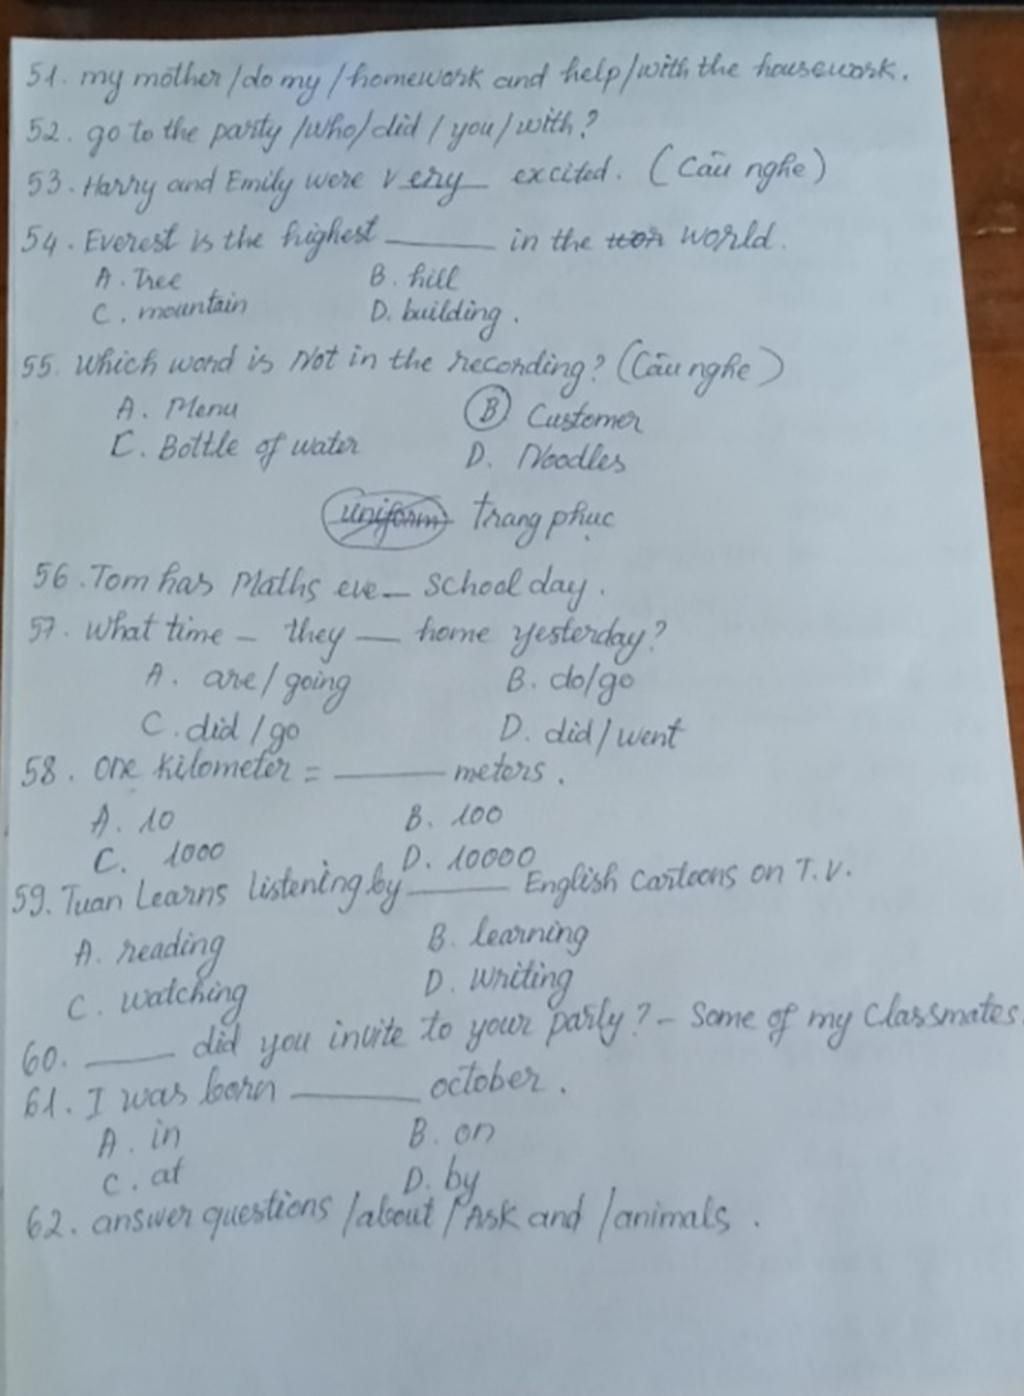 51. my mother/do my/homework and help/with the housework.
52. go to the party/who/did/you/with?
53. Harry and Emily were very excited. (Câu nghe)
54. Everest is the highest ______ in the world.
A. Tree B. hill
C. mountain D. building.
55. Which word is Not in the recording? (Câu nghe)
A. Menu B Customer
C. Bottle of water D. Noodles
uniform trang phục
56. Tom has Maths eve_ school day.
57. What time _ they _ home yesterday?
A. are/going B. do/go
C. did/go D. did/went
58. One kilometer = ______ meters.
A. 10 B. 100
C. 1000 D. 10000
59. Tuan Learns listening by ______ English cartoons on T.V.
A. reading B. learning
C. watching D. writing
60. ______ did you invite to your party? - Some of my classmates.
61. I was born ______ october.
A. in B. on
C. at D. by
62. answer questions/about/Ask and/animals.